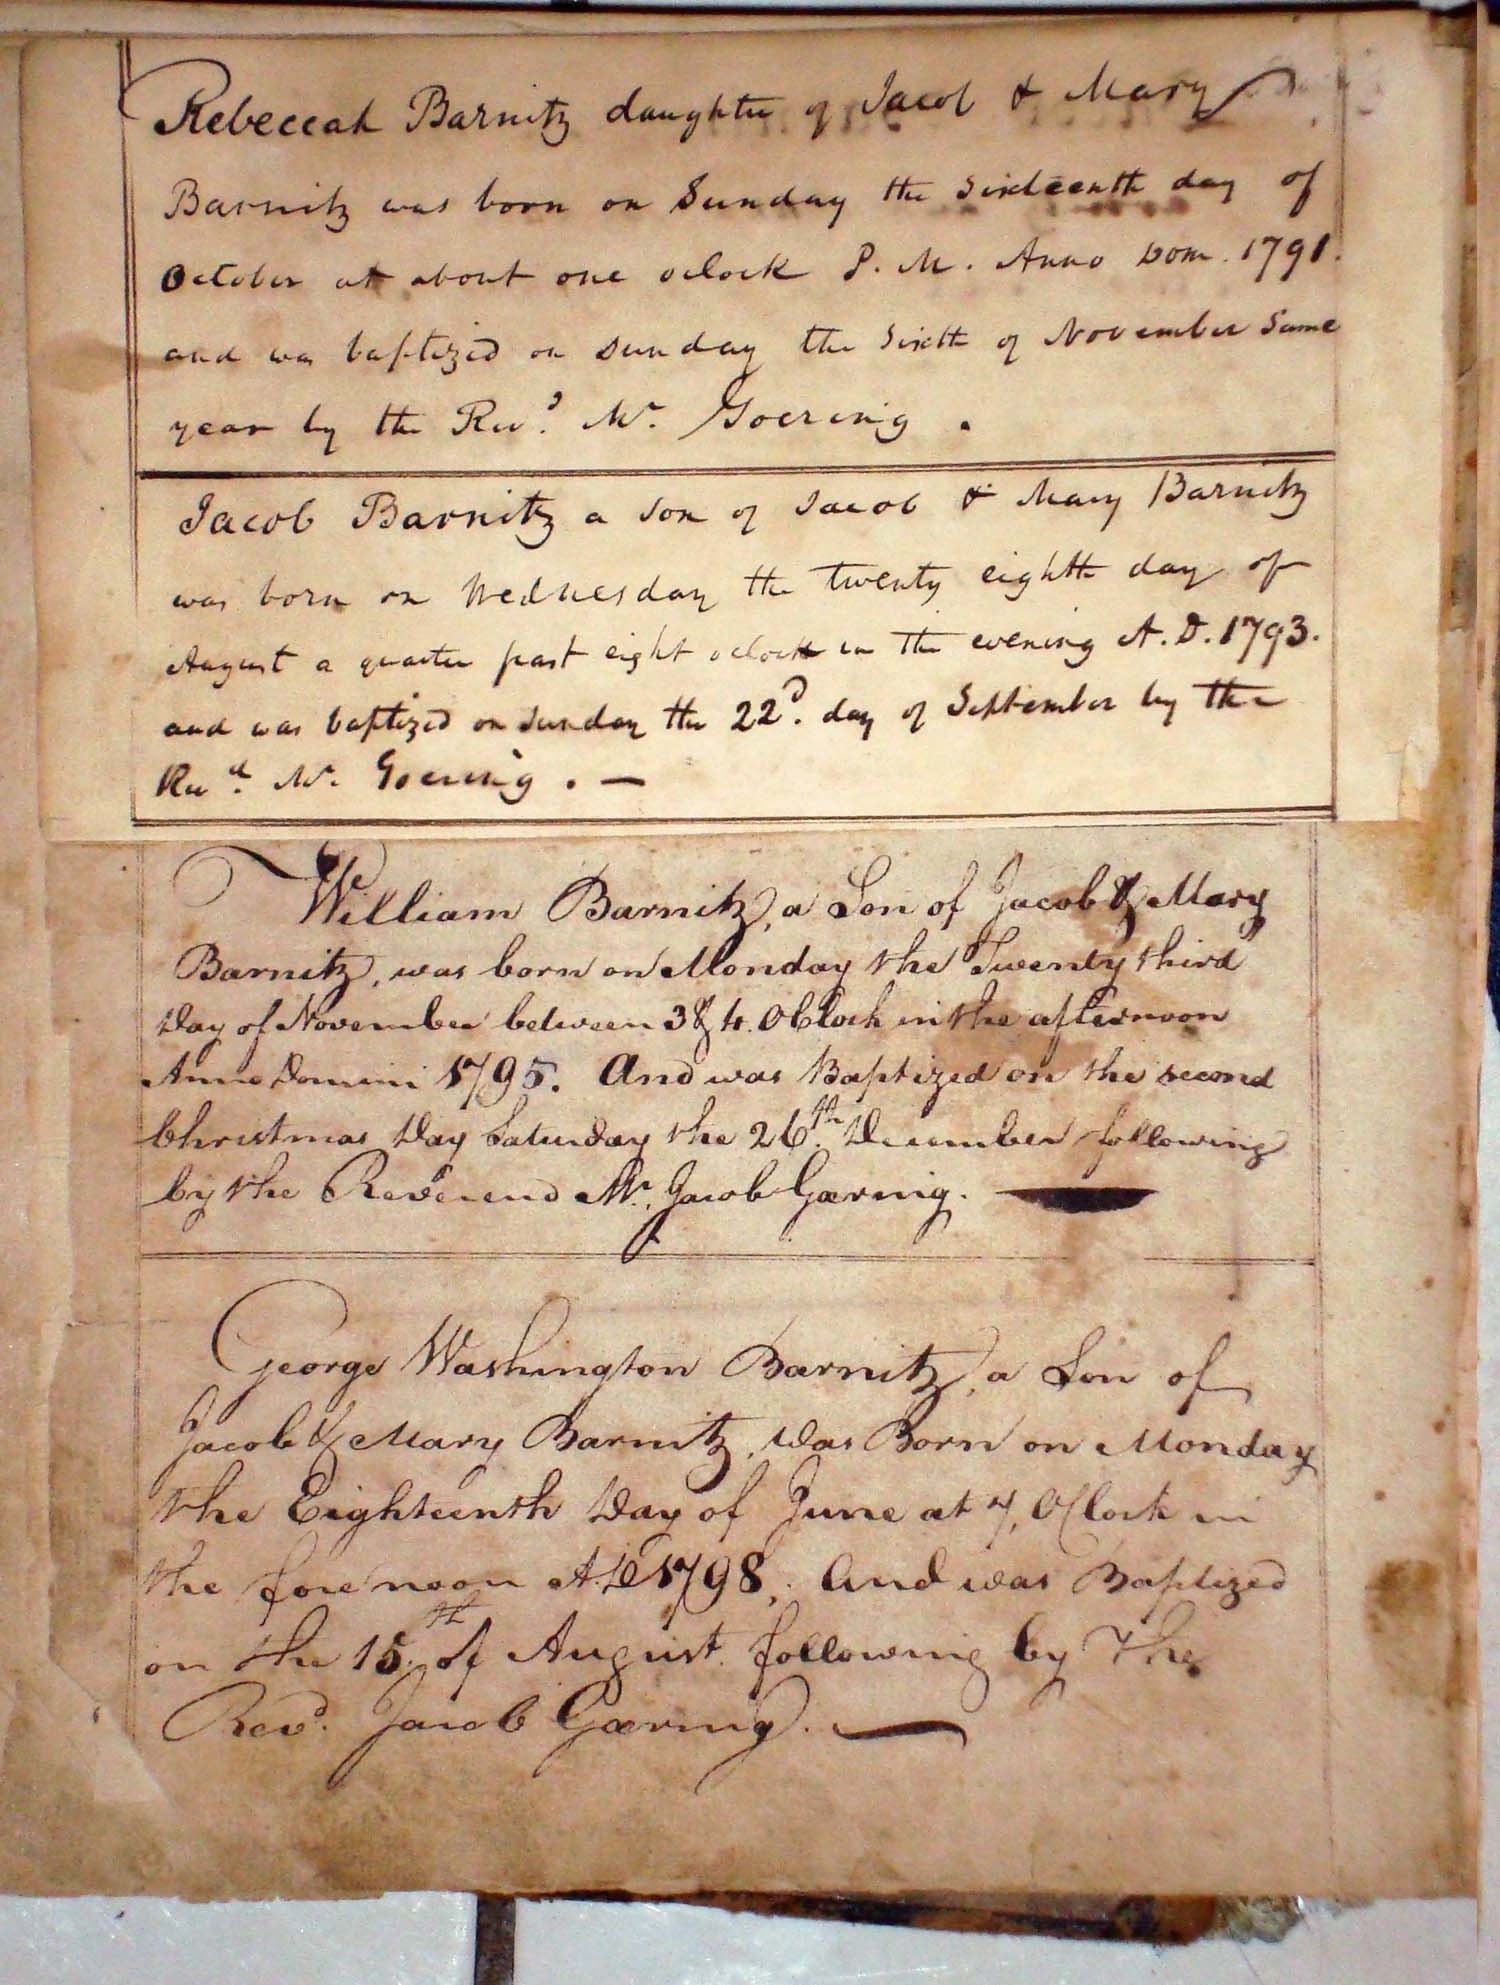 Rebeccah Barnitz daughter of Jacob & Mary
Barnitz was born on Sunday the sixteenth day of
October at about one oclock P. M. Anno Dom. 1791.
and was baptized on Sunday the Sixth of November Same
year by the Revd. Mr. Goering.
Jacob Barnitz a son of Jacob & Mary Barnitz
was born on Wednesday the twenty eighth day of
August a quarter past eight oclock in the evening A. D. 1793.
and was baptized on Sunday the 22d. day of September by the
Revd. Mr. Goering. —
William Barnitz, a Son of Jacob & Mary
Barnitz, was born on Monday the Twenty third
Day of November between 3 & 4. OClock in the afternoon
Anno Domini 1795. And was Baptized on the second
Christmas Day Saturday the 26th. December following
by the Reverend Mr. Jacob Gœring.
George Washington Barnitz, a Son of
Jacob & Mary Barnitz, was Born on Monday
the Eighteenth Day of June at 7, OClock in
the forenoon A.D 1798, And was Baptized
on the 15th. of August following by The
Revd. Jacob Gœring. —